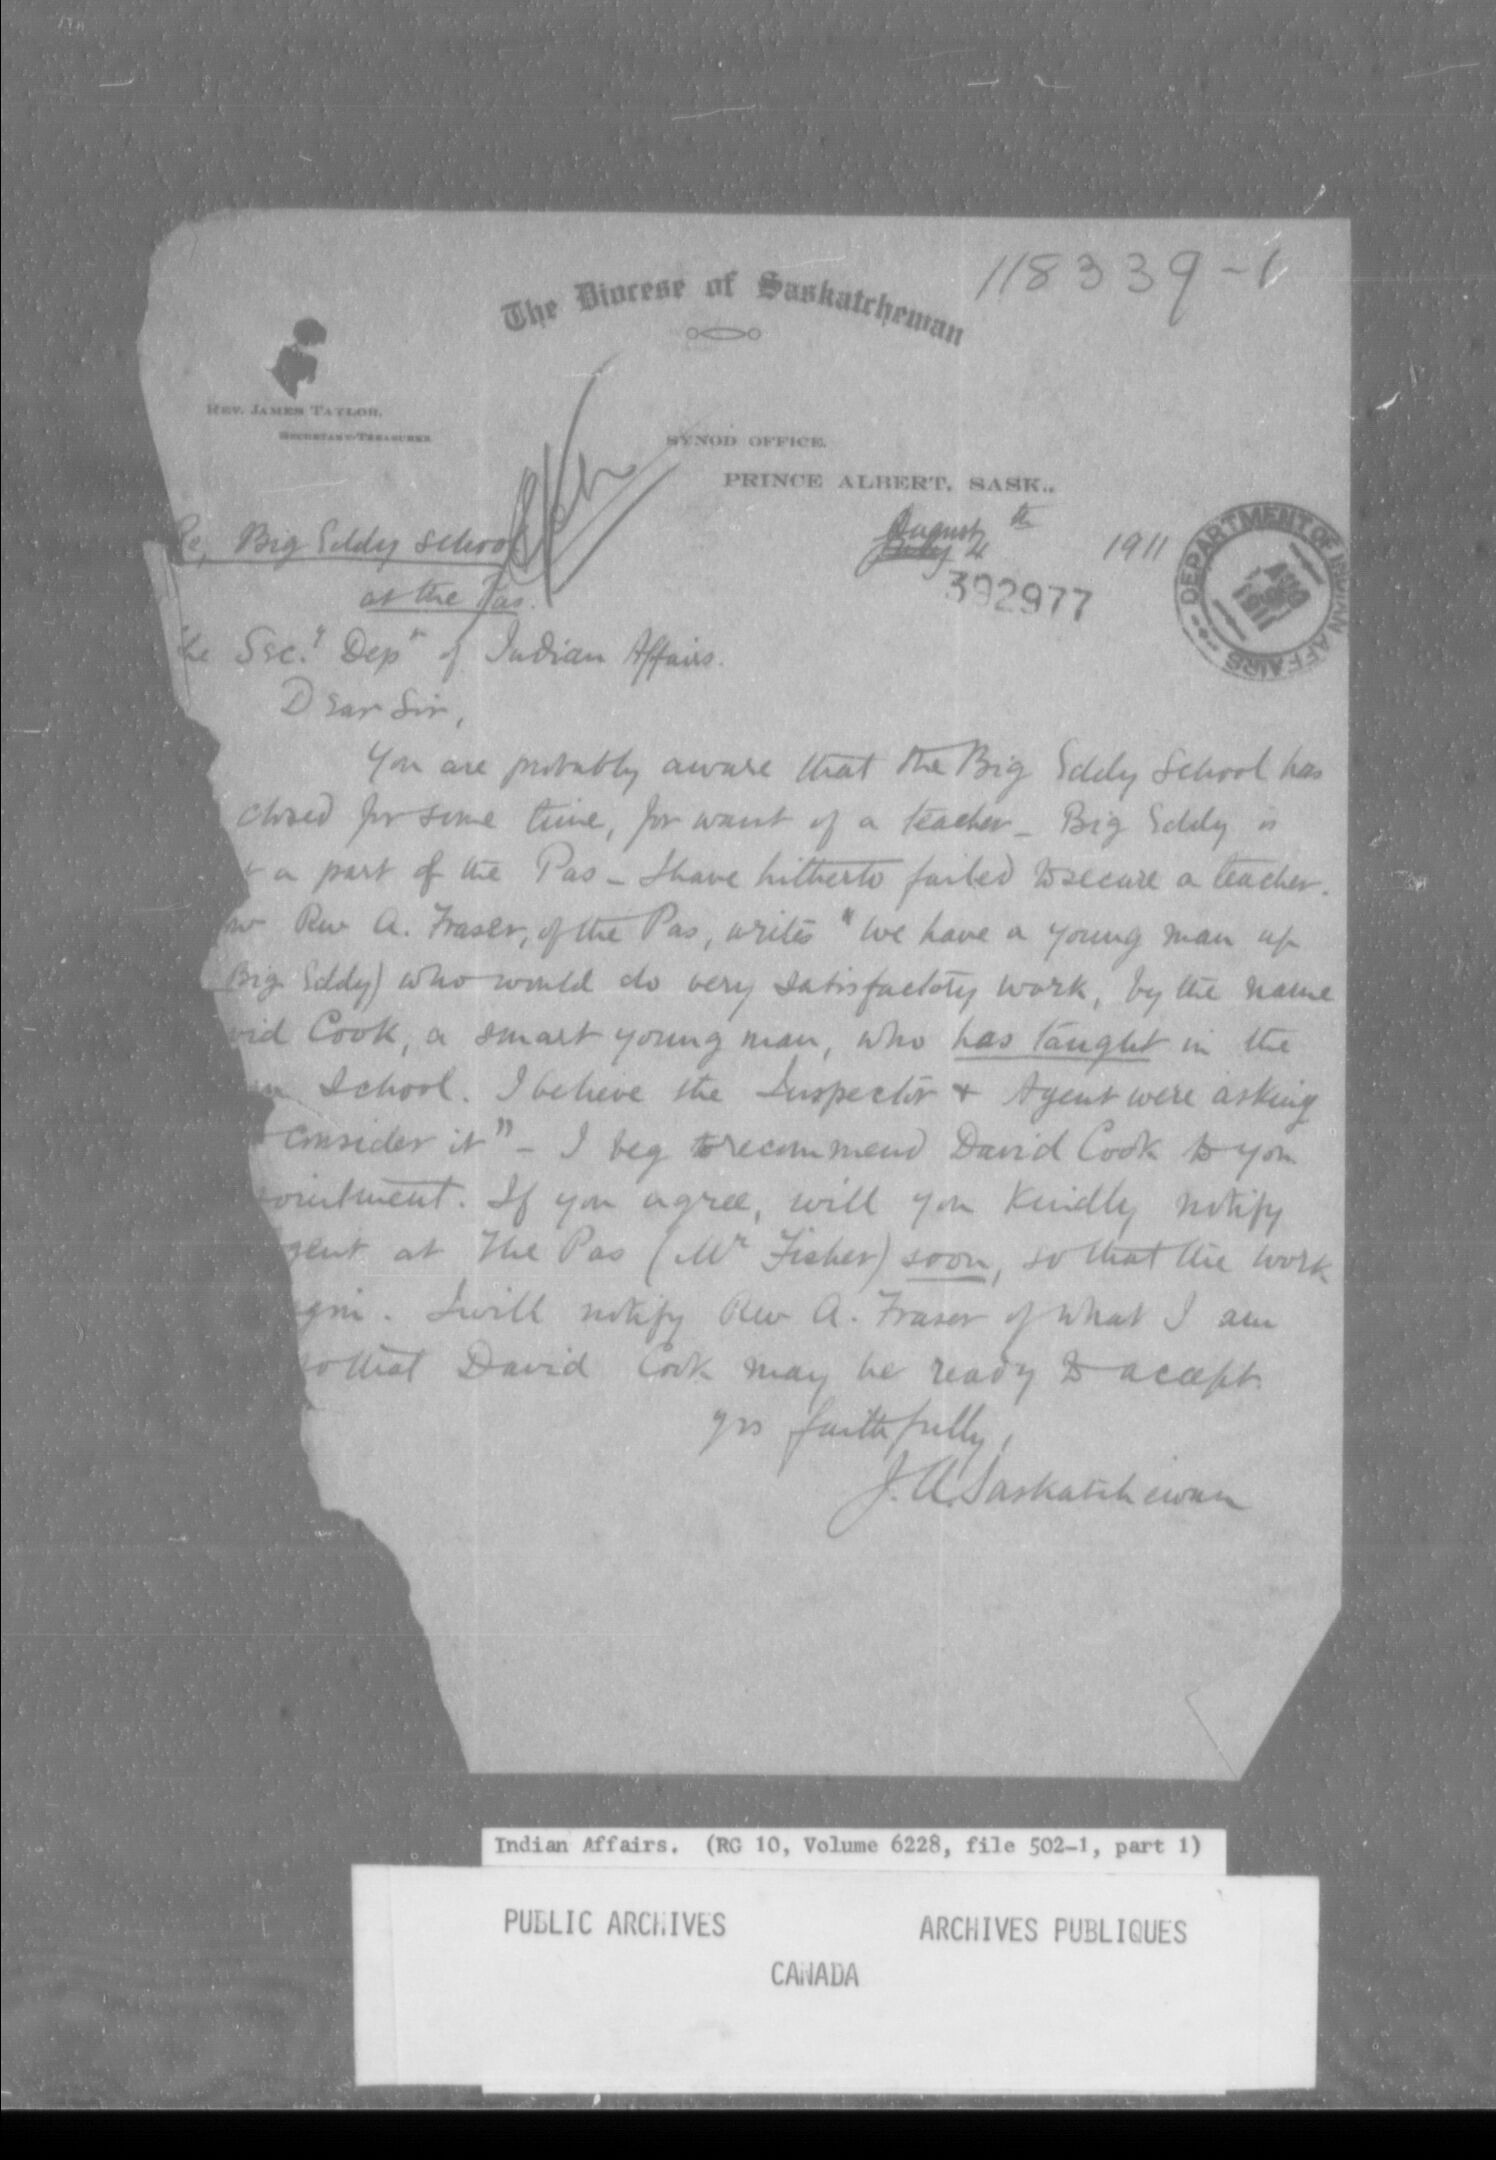 118339-1
The Diocese of Saskatchewan
REV. JAMES TAYLOR,
SECRETARY-TREASURER
SYNOD OFFICE.
PRINCE ALBERT, SASK.,
August
July 4 th 1911
392977
DEPARTMENT OF INDIAN AFFAIRS
Re, Big Eddy School
at the Pas.
he Sec.y Dept of Indian Affairs.
Dear Sir,
You are probably aware that the Big Eddy School has
closed for some time, for want of a teacher - Big Eddy is
t a part of the Pas - I have hitherto failed to secure a teacher.
ow Rev A. Fraser, of the Pas, writes "We have a young man up
Big Eddy) who would do very satisfactory work, by the name
vid Cook, a smart young man, who has taught in the
School. I believe the Inspector + Agent were asking
consider it" - I beg to recommend David Cook to you
ointment. If you agree, will you kindly notify
gent at The Pas (Mr Fisher) soon, so that the work
egin. I will notify Rev A. Fraser of what I am
so that David Cook may be ready to accept.
yrs faithfully,
J. A. Saskatchewan
Indian Affairs. (RG 10, Volume 6228, file 502-1, part 1)
PUBLIC ARCHIVES ARCHIVES PUBLIQUES
CANADA